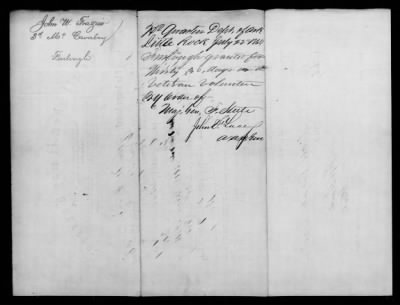 John W. Frazier
3d Mo. Cavalry
Furlough
Hd Quarters Dept. of Ark
Little Rock July 22 186
Furlough granted for
Thirty days
veteran volunteer
By order of
Maj Gen. F. Steele
John